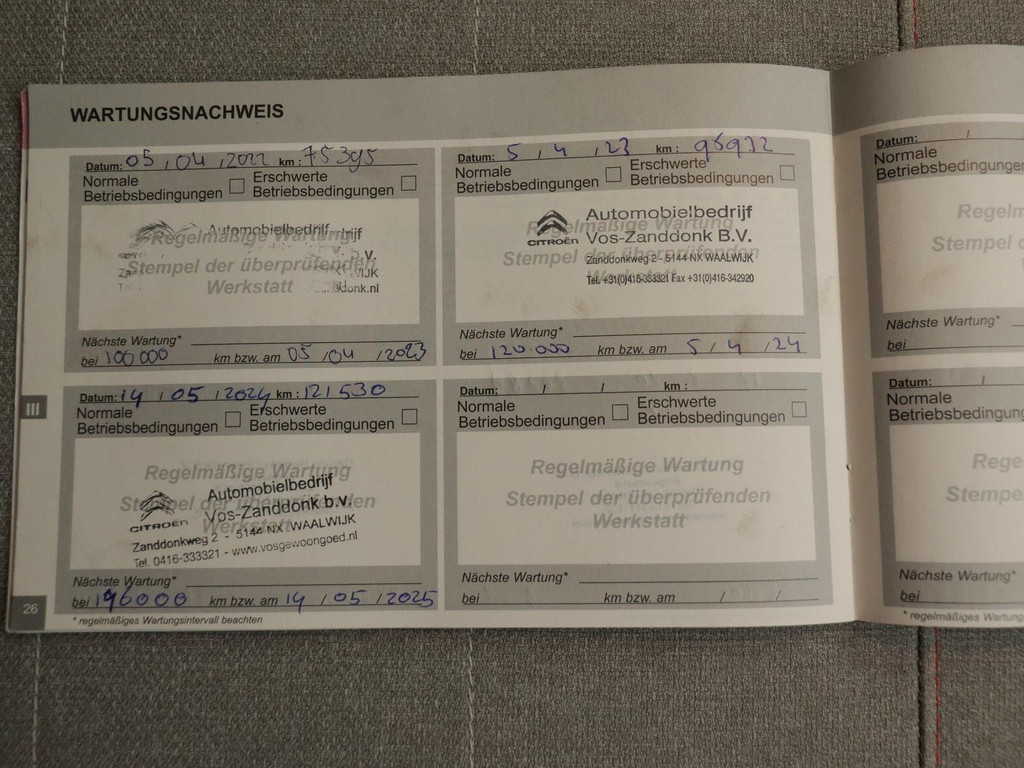 WARTUNGSNACHWEIS
Datum: 05 / 04 / 2022 km : 75395
Normale Betriebsbedingungen
Erschwerte Betriebsbedingungen
Regelmäßige Wartung
Stempel der überprüfenden
Werkstatt
Automobielbedrijf
B.V.
WAALWIJK
Nächste Wartung*
bei 100 000 km bzw. am 05 / 04 / 2023
Datum: 5 / 4 / 23 km : 96932
Normale Betriebsbedingungen
Erschwerte Betriebsbedingungen
Regelmäßige Wartung
Stempel der überprüfenden
Werkstatt
CITROËN
Automobielbedrijf
Vos-Zanddonk B.V.
Zanddonkweg 2 - 5144 NX WAALWIJK
Tel. +31(0)416-333321 Fax +31(0)416-342920
Nächste Wartung*
bei 120.000 km bzw. am 5 / 4 / 24
Datum: 14 / 05 / 2024 km : 121 530
Normale Betriebsbedingungen
Erschwerte Betriebsbedingungen
Regelmäßige Wartung
Stempel der überprüfenden
Werkstatt
CITROËN
Automobielbedrijf
Vos-Zanddonk b.v.
Zanddonkweg 2 - 5144 NX WAALWIJK
Tel. 0416-333321 - www.vosgewoongoed.nl
Nächste Wartung*
bei 146000 km bzw. am 14 / 05 / 2025
Datum: / / km :
Normale Betriebsbedingungen
Erschwerte Betriebsbedingungen
Regelmäßige Wartung
Stempel der überprüfenden
Werkstatt
Nächste Wartung*
bei km bzw. am / /
III
26
* regelmäßiges Wartungsintervall beachten
Datum: /
Normale
Betriebsbedingung
Regelm
Stempel d
Nächste Wartung*
bei
Datum: /
Normale
Betriebsbedingung
Rege
Stempe
Nächste Wartung*
bei
* regelmäßiges Wartung